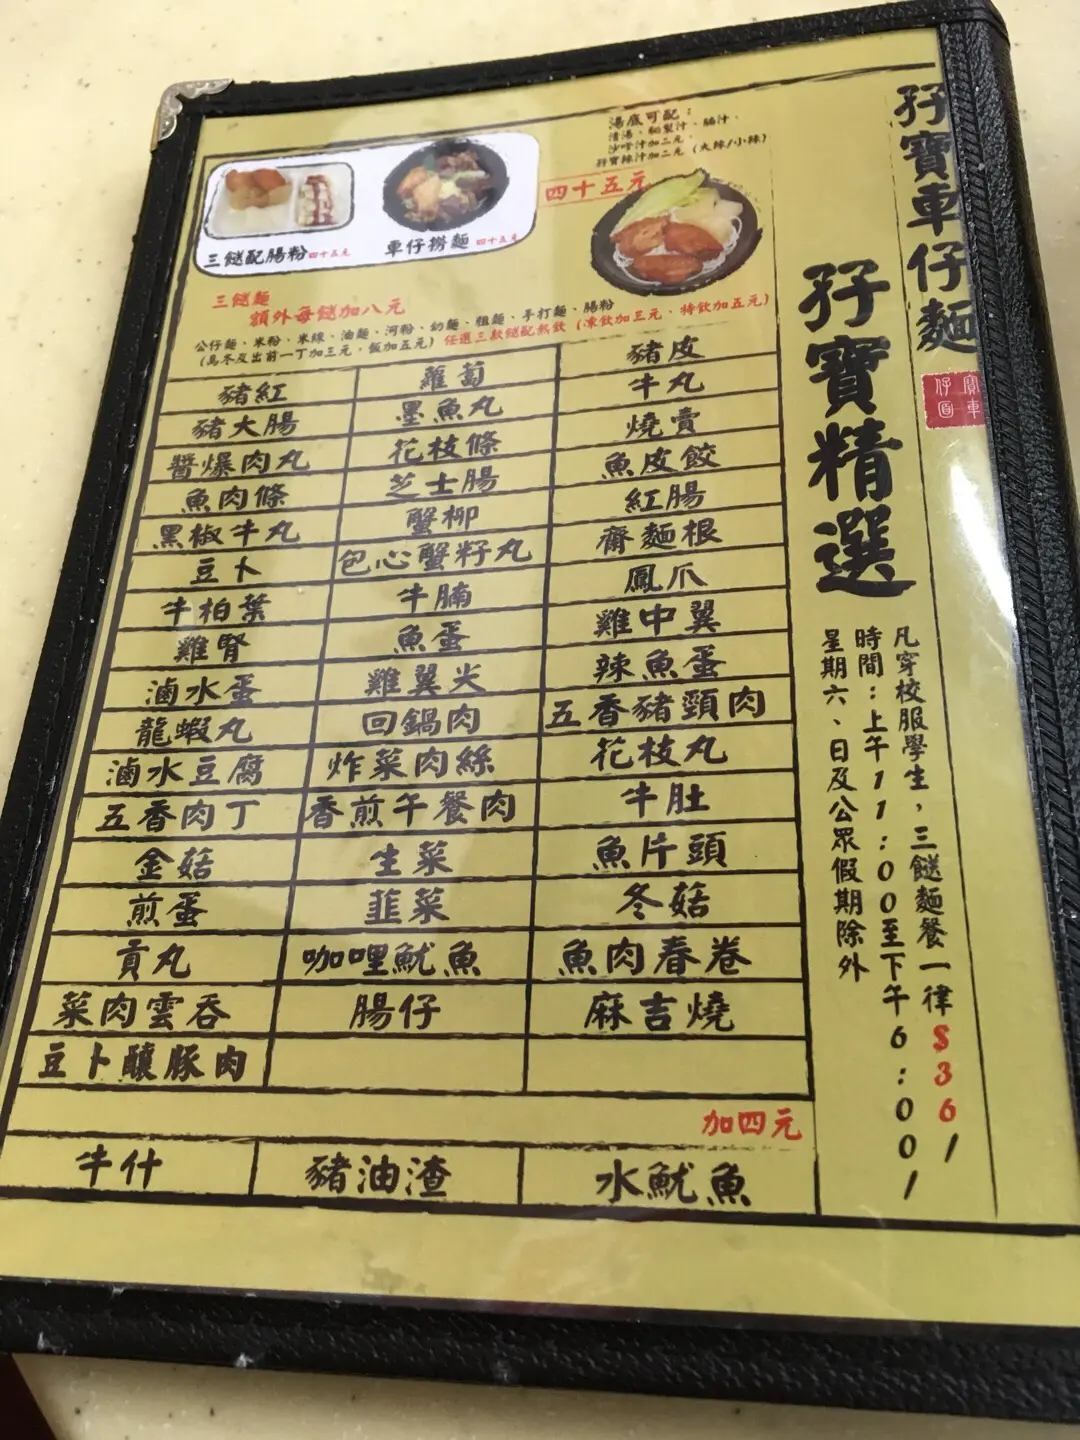 孖寶車仔麵
孖寶精選
湯底可配：
清湯、秘製汁、腩汁、
沙嗲汁加二元、
孖寶辣汁加二元（大辣/小辣）
四十五元
三餸配腸粉 四十五元
車仔撈麵 四十五元
三餸麵
額外每餸加八元
公仔麵、米粉、米線、油麵、河粉、幼麵、粗麵、手打麵、腸粉
(烏冬及出前一丁加三元、飯加五元) 任選三款餸配熱飲 (凍飲加三元、特飲加五元)
豬紅 蘿蔔 豬皮
豬大腸 墨魚丸 牛丸
醬爆肉丸 花枝條 燒賣
魚肉條 芝士腸 魚皮餃
黑椒牛丸 蟹柳 紅腸
豆卜 包心蟹籽丸 齋麵根
牛柏葉 牛腩 鳳爪
雞腎 魚蛋 雞中翼
滷水蛋 雞翼尖 辣魚蛋
龍蝦丸 回鍋肉 五香豬頸肉
滷水豆腐 炸菜肉絲 花枝丸
五香肉丁 香煎午餐肉 牛肚
金菇 生菜 魚片頭
煎蛋 韮菜 冬菇
貢丸 咖哩魷魚 魚肉春卷
菜肉雲吞 腸仔 麻吉燒
豆卜釀豚肉
加四元
牛什 豬油渣 水魷魚
凡穿校服學生，三餸麵餐一律$36/
時間：上午11:00至下午6:00/
星期六、日及公眾假期除外